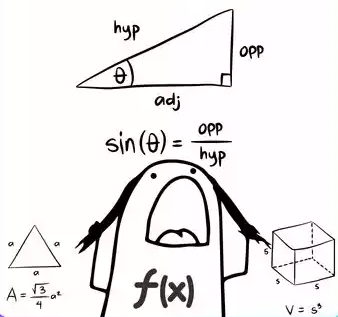 hyp
opp
θ
adj
sin(θ) = opp/hyp
a a
a
A = √3/4 a²
f(x)
s
s s
V = s³